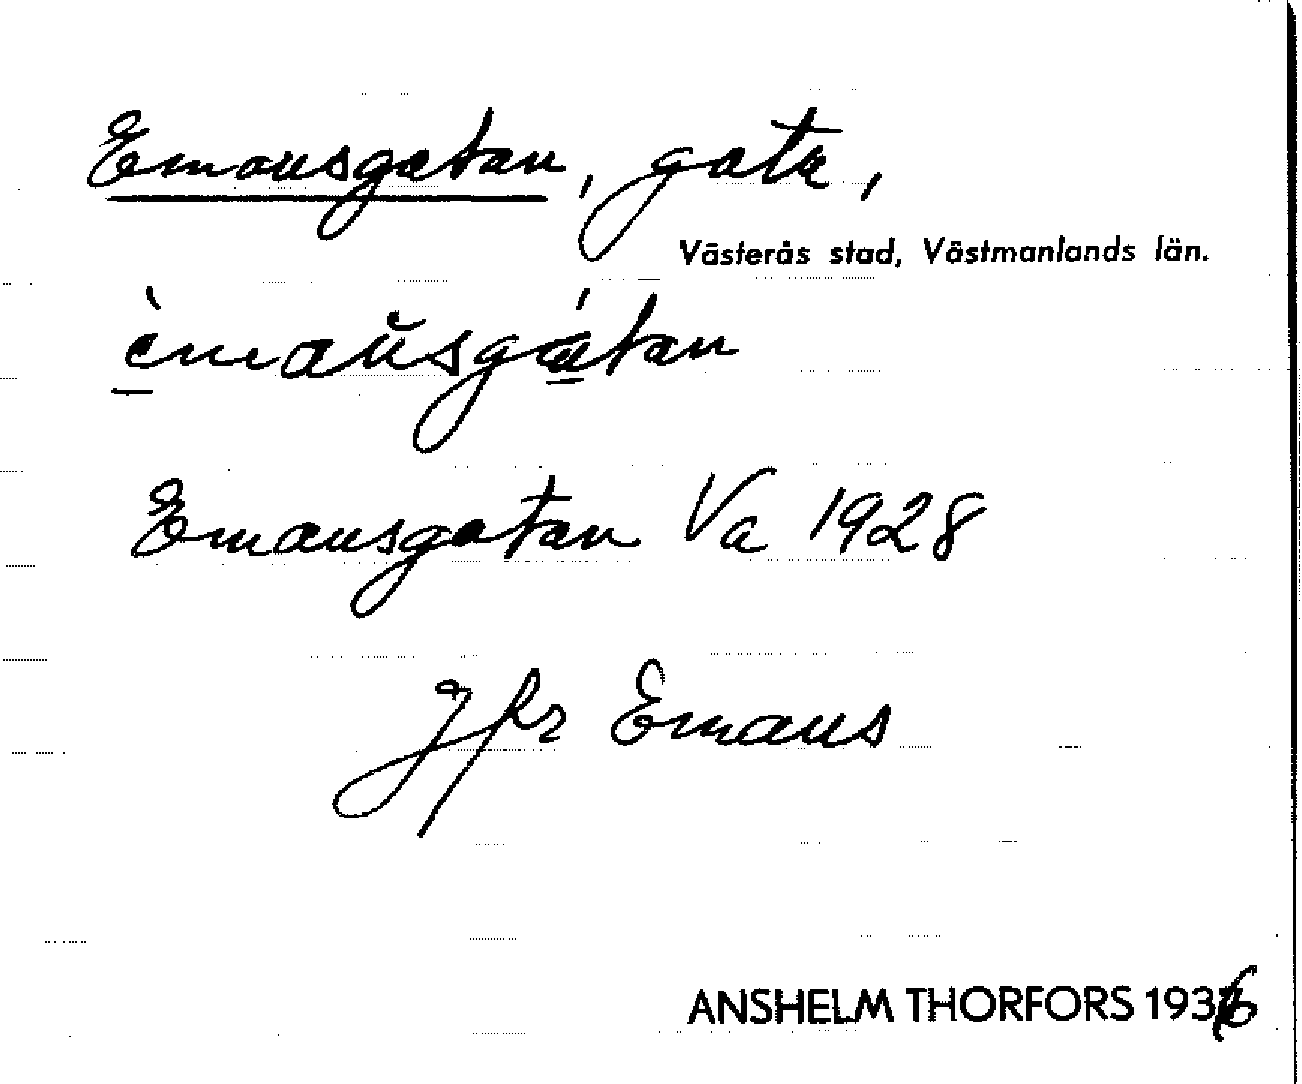 Emausgatan, gata,
Västerås stad, Västmanlands län.
èmaŭsgátan
Emausgatan Va 1928
Jfr Emaus
ANSHELM THORFORS 1936